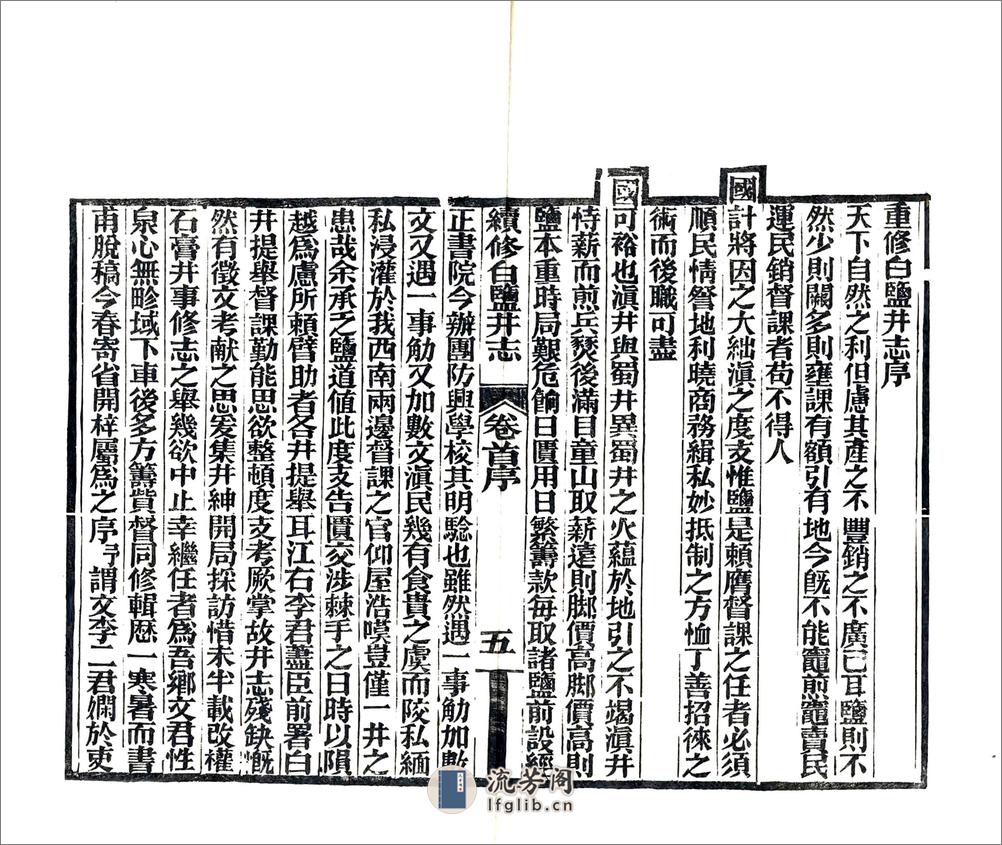 重修白鹽井志序
天下自然之利但慮其產之不豐銷之不廣已耳鹽則不
然少則闕多則壅課有額引有地今旣不能竈煎竈賣民
運民銷督課者苟不得人
國計將因之大絀滇之度支惟鹽是賴膺督課之任者必須
順民情詧地利曉商務緝私妙抵制之方恤丁善招徠之
術而後職可盡
國可裕也滇井與蜀井異蜀井之火蘊於地引之不竭滇井
恃薪而煎兵燹後滿目童山取薪遠則脚價高脚價高則
鹽本重時局艱危餉日匱用日繁籌款每取諸鹽前設經
續修白鹽井志
卷首序
五
正書院今辦團防興學校其明驗也雖然遇一事觔加數
文又遇一事觔又加數文滇民幾有食貴之虞而陵私緬
私浸灌於我西南兩邊督課之官仰屋浩嘆豈僅一井之
患哉余承乏鹽道值此度支告匱交涉棘手之日時以隕
越爲慮所賴臂助者各井提舉耳江右李君藎臣前署白
井提舉督課勤能思欲整頓度支考厥掌故井志殘缺慨
然有徵文考献之思爰集井紳開局採訪惜未半載改權
石膏井事修志之舉幾欲中止幸繼任者爲吾鄉文君性
泉心無畛域下車後多方籌貲督同修輯歷一寒暑而書
甫脫稿今春寄省開樣屬爲之序予謂文李二君嫻於吏
流芳阁
lfglib.cn